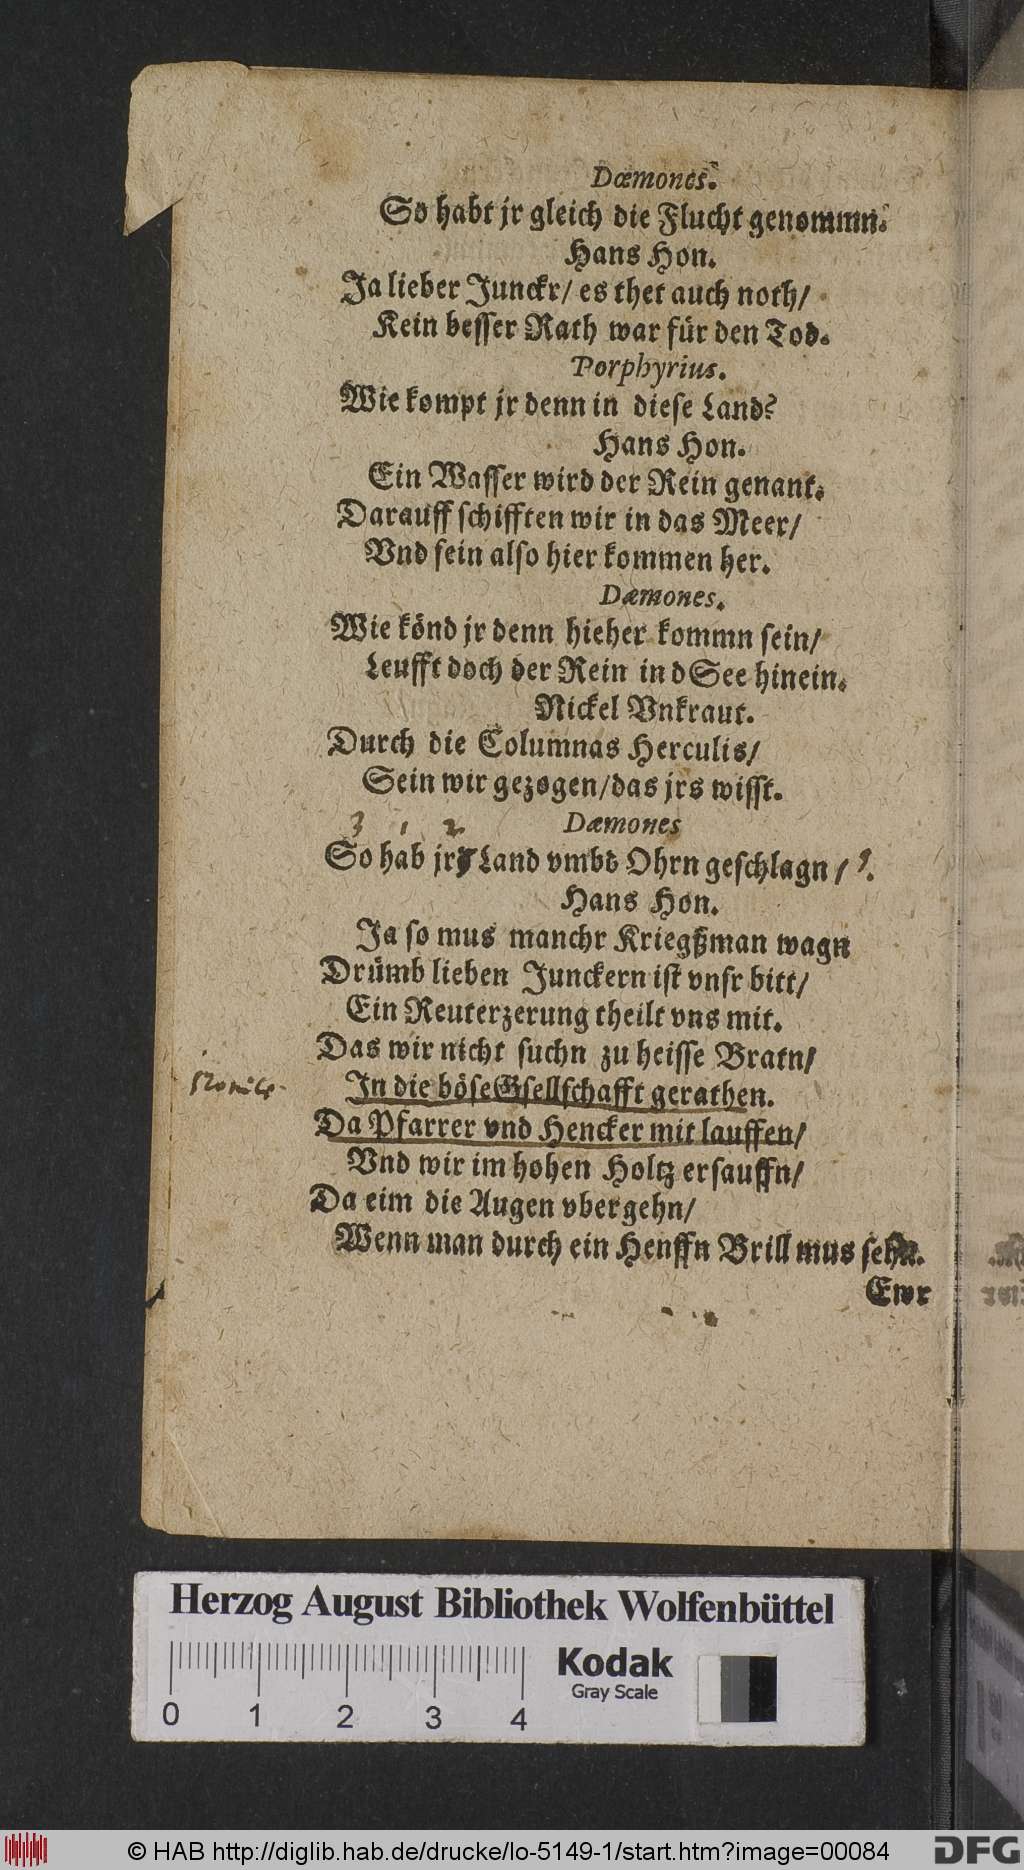 Dæmones.
So habt jr gleich die Flucht genommn.
Hans Hon.
Ja lieber Junckr/ es thet auch noth/
Kein besser Rath war für den Tod.
Porphyrius.
Wie kompt jr denn in diese Land?
Hans Hon.
Ein Wasser wird der Rein genant.
Darauff schifften wir in das Meer/
Vnd sein also hier kommen her.
Dæmones.
Wie könd jr denn hieher kommn sein/
Leufft doch der Rein in d See hinein.
Nickel Vnkraut.
Durch die Columnas Herculis/
Sein wir gezogen/das jrs wisst.
Dæmones
3 1 2
So hab jr Land vmbd Ohrn geschlagn / ?.
Hans Hon.
Ja so mus manchr Kriegßman wagn
Drümb lieben Junckern ist vnsr bitt/
Ein Reuterzerung theilt vns mit.
Das wir nicht suchn zu heisse Bratn/
In die böse Gsellschafft gerathen.
Da Pfarrer vnd Hencker mit lauffen/
Vnd wir im hohen Holtz ersauffn/
Da eim die Augen vbergehn/
Wenn man durch ein Henffn Brill mus sehn.
Ewr
Herzog August Bibliothek Wolfenbüttel
Kodak
Gray Scale
0 1 2 3 4
© HAB http://diglib.hab.de/drucke/lo-5149-1/start.htm?image=00084
DFG